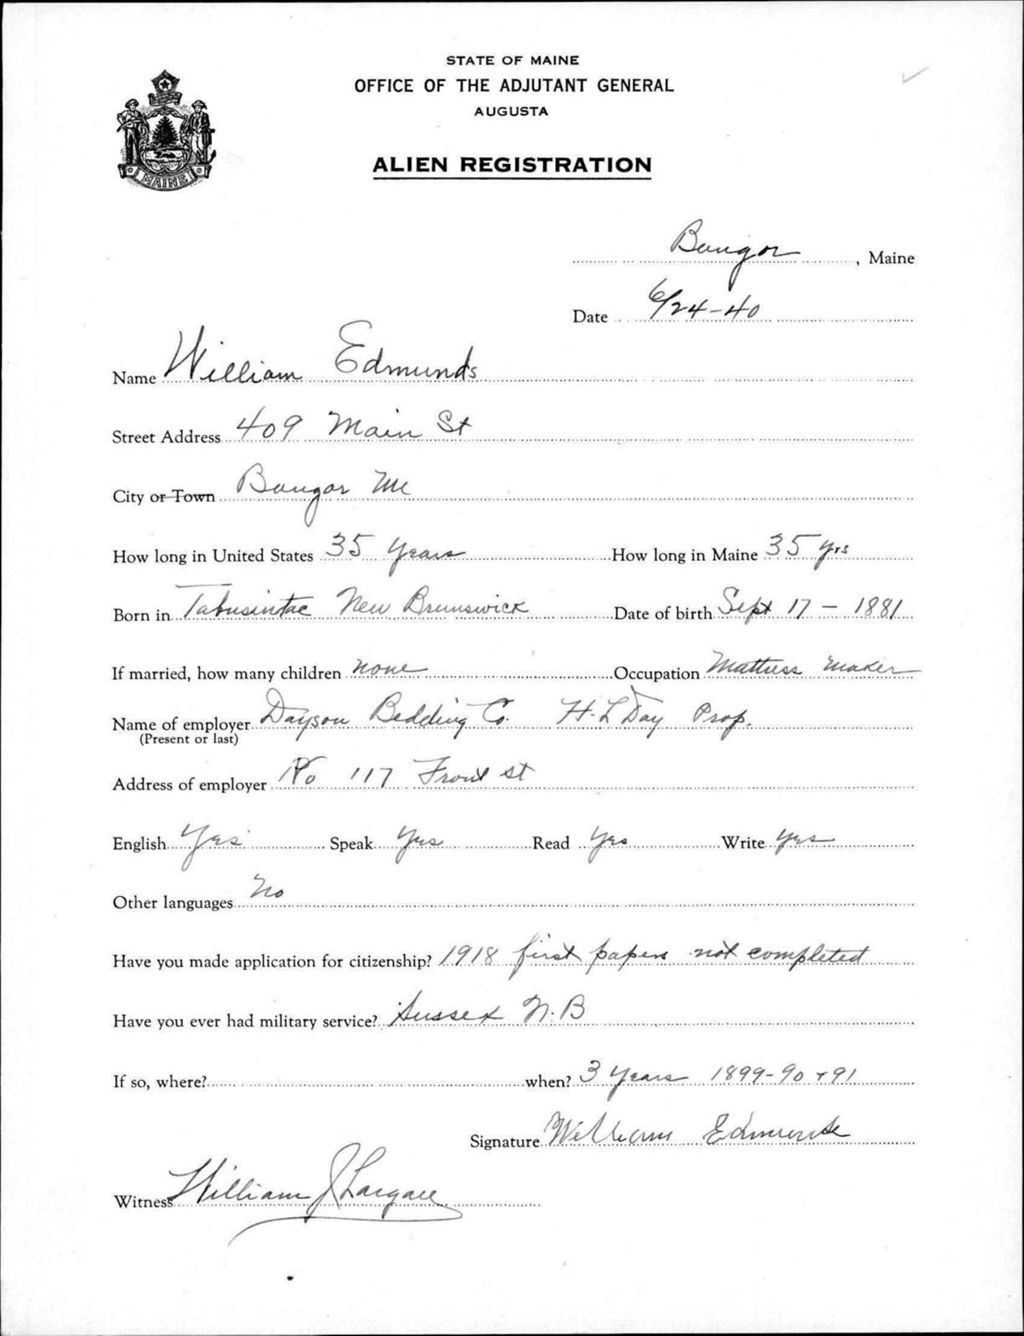 STATE OF MAINE
OFFICE OF THE ADJUTANT GENERAL
AUGUSTA
ALIEN REGISTRATION
MAINE
Bangor, Maine
Date 6/24-40
Name William Edmunds
Street Address 409 Main St
City or Town Bangor Me
How long in United States 35 Years How long in Maine 35 yrs
Born in Tabusintac New Brunswick Date of birth Sept 17 - 1881
If married, how many children none Occupation Mattress maker
Name of employer Dayson Bedding Co. H. L Day Prop.
(Present or last)
Address of employer No 117 Front st
English Yes Speak Yes Read Yes Write yes
Other languages No
Have you made application for citizenship? 1918 first papers not completed
Have you ever had military service? Sussex N.B
If so, where? when? 3 Years 1899-90 + 91
Signature William Edmunds
Witness William J